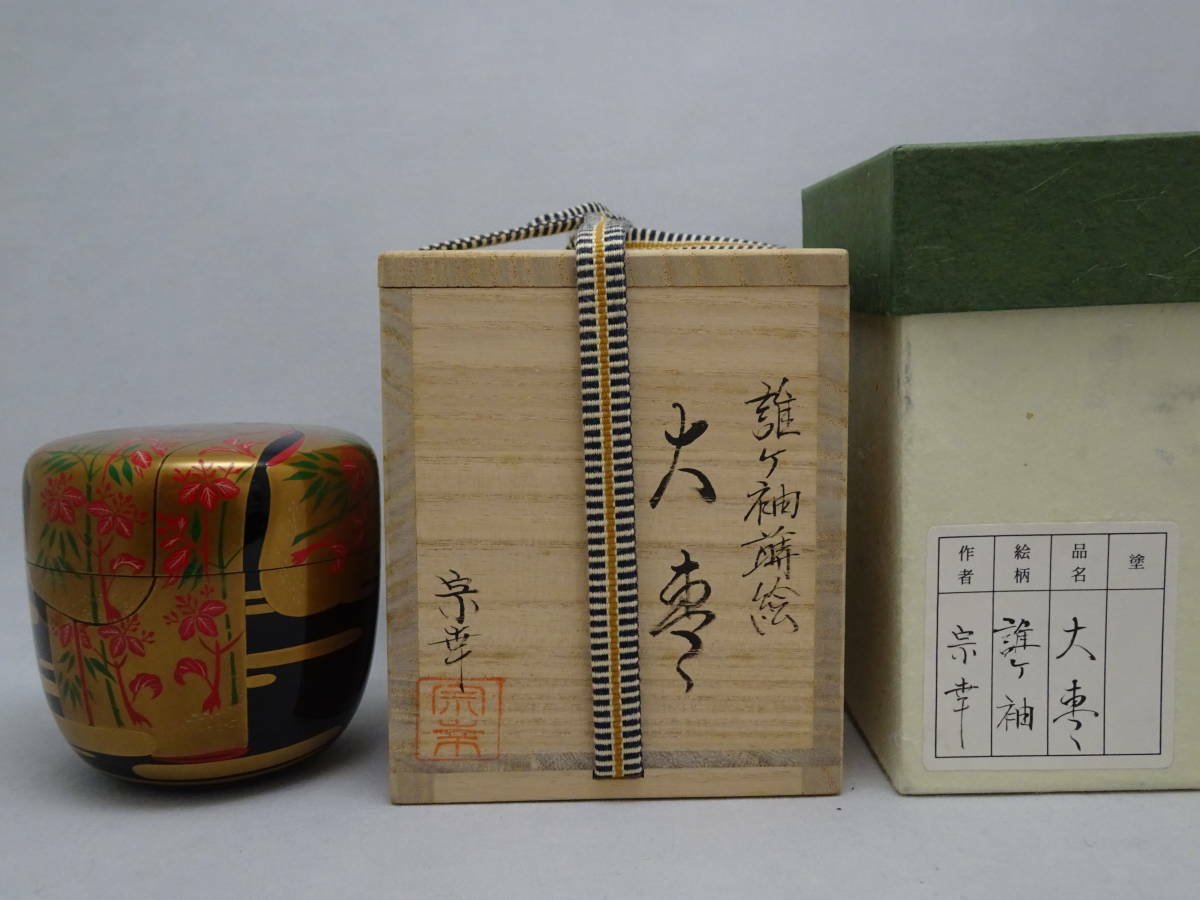 誰ヶ袖蒔絵
大棗
宗幸
宗幸
塗
品名
大棗
絵柄
誰ヶ袖
作者
宗幸